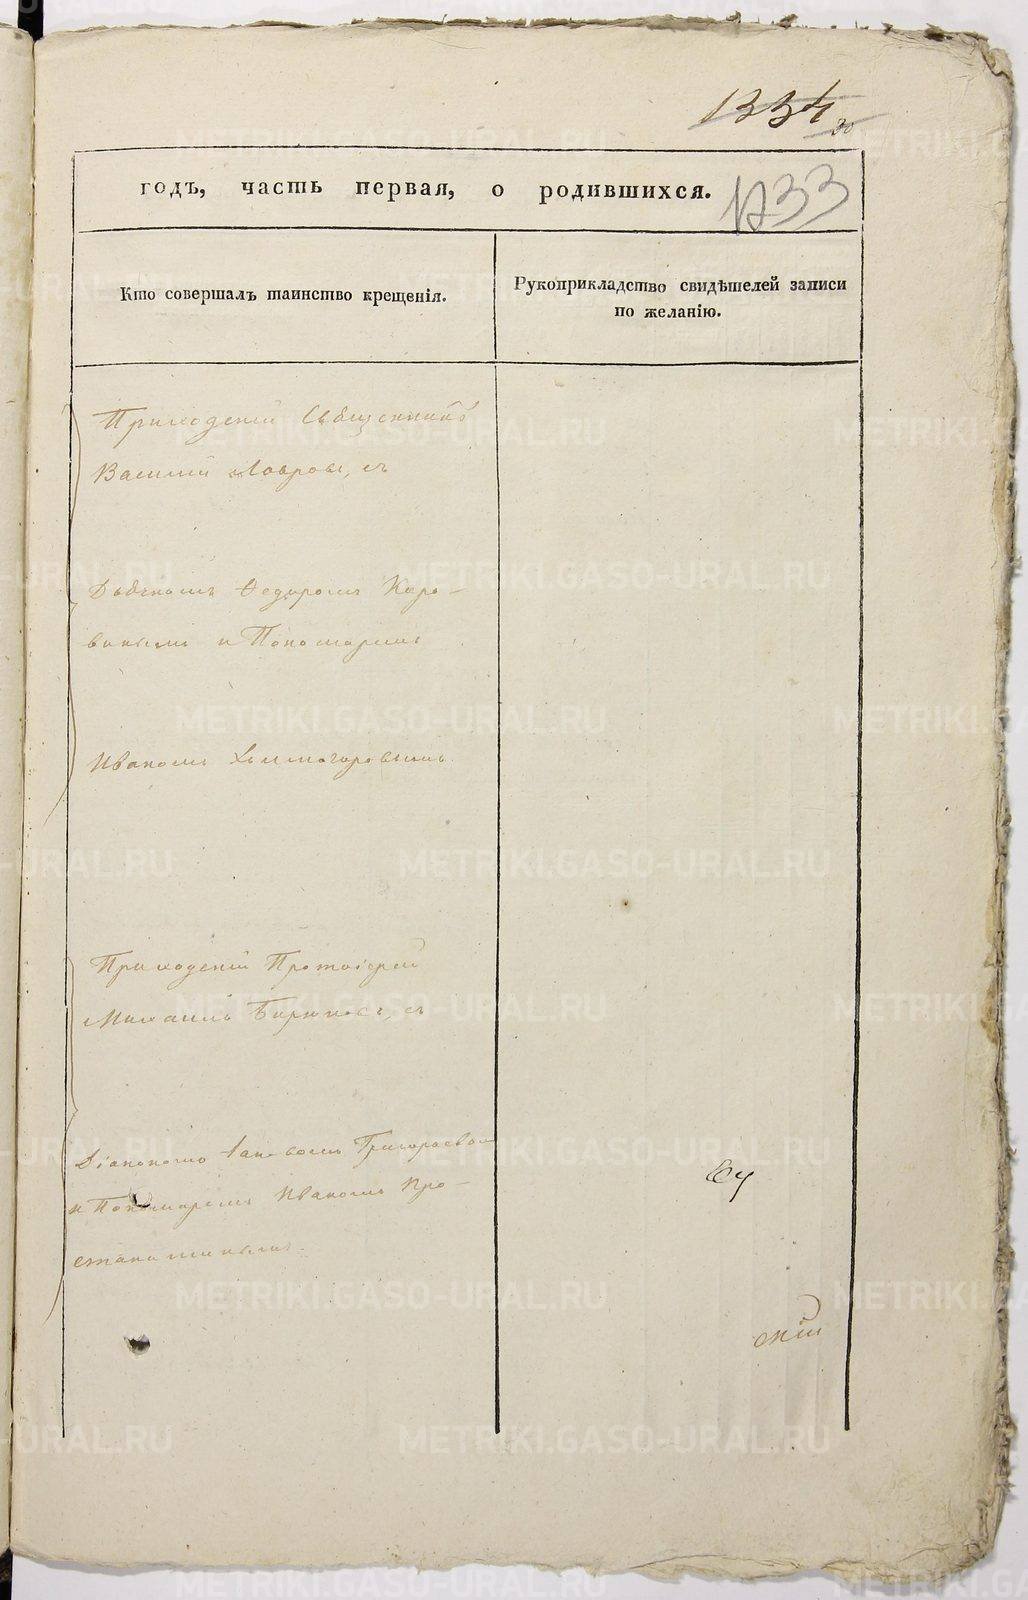 1334
30
годъ, часть первая, о родившихся.
1233
Кто совершалъ таинство крещенія.
Рукоприкладство свидѣтелей записи
по желанію.
Приходскій Священникъ
Василій Лавровъ, съ
Ѳедоромъ Каро-
винымъ и Пономаремъ
Иваномъ Холмогоровымъ
Приходскій Протоіерей
Михаилъ Бирюковъ, съ
Діакономъ Іаковомъ
и Пономаремъ Иваномъ Про-
METRIKI.GASO-URAL.RU